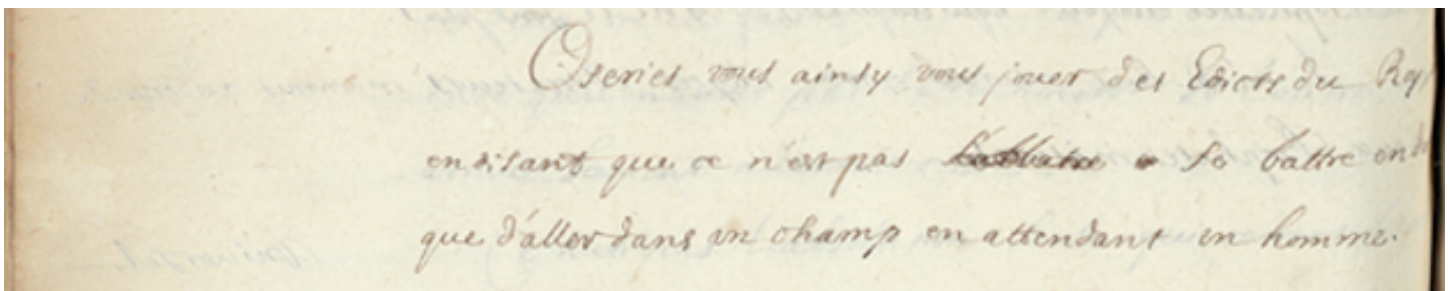 Oseriés vous ainsy vous jouer des Edicts du Roy
en disant que ce n'est pas se battre en
que d'aller dans un champ en attendant un homme.